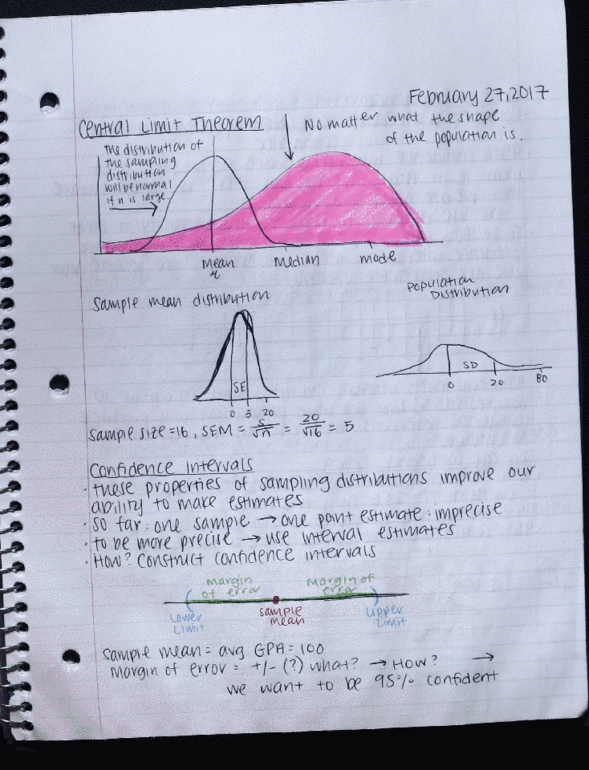 February 27, 2017
Central Limit Theorem
No matter what the shape
of the population is.
The distribution of
the sampling
distribution
will be normal
if n is large.
Mean
Median
mode
Sample mean distribution
Population
Distribution
SE
0 5 20
SD
0 20 80
Sample size = 16, SEM = s/√n = 20/√16 = 5
Confidence Intervals
· these properties of sampling distributions improve our
ability to make estimates
· so far: one sample → one point estimate: imprecise
· to be more precise → use interval estimates
· How? Construct confidence intervals
margin
of error
Margin of
error
Lower
Limit
sample
mean
Upper
Limit
Sample mean = avg GPA = 100
Margin of error = +/- (?) what? → How? →
we want to be 95% confident